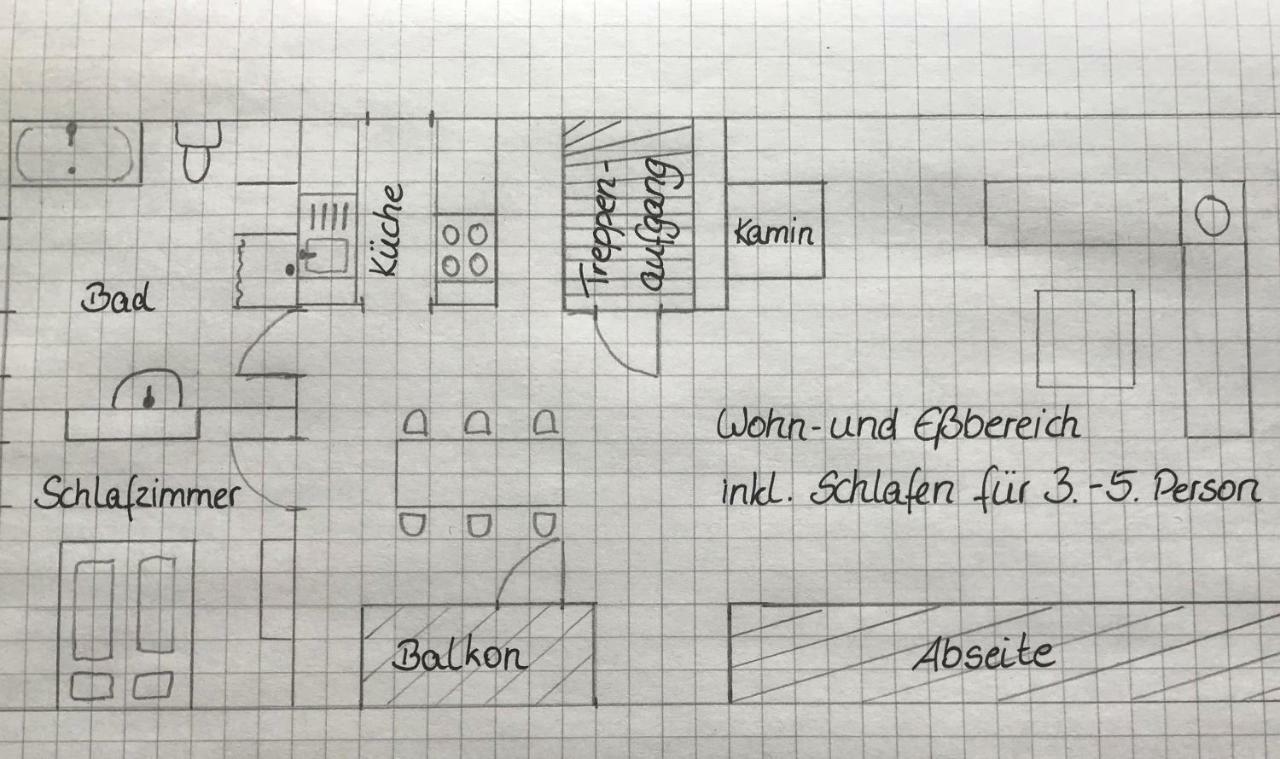 Küche
Treppen-
aufgang
Kamin
Bad
Wohn- und Eßbereich
inkl. Schlafen für 3.-5. Person
Schlafzimmer
Balkon
Abseite